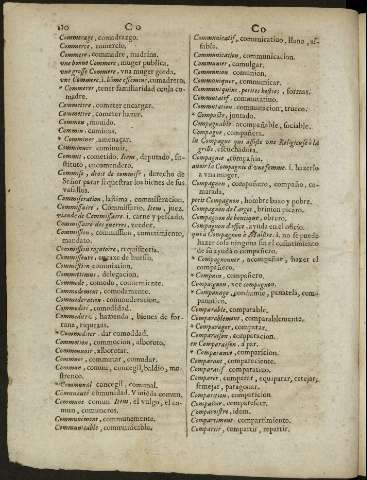 C O
Co
Commerage, comadrazgo.
Commerce, comercio.
Commere, commadre, madrina.
une bonne Commere, muger publica.
une grosse Commere, vna muger gorda.
* Commerer, tener familiaridad con la comadre.
Commettre, cometer encargar.
Commettre, cometer hazer.
Commun, mundo.
* Comminer, amenaçar.
Comminuer, comminuir.
Commis, cometido, Item, deputado, substituto, encomendero.
Commis, droit de commise, derecho de
Señor parar si questrar los bienes de sus
vasallos.
Commiseration, lastima, commiseracion.
Commissaire, Commissario, Item, juez.
viande de Commissaire, i. carne y pescado.
Commissaire des guerres, veedor.
Commission, commission, commetimiento,
mandato.
Commission rogatoire, requisitoria.
Commissoire, atraxe de huesso.
Commistion, commistion.
Committimus, delegacion.
Commode, comodo, conveniente.
Commodement, comodamente.
Commoderation, commoderacion.
Commodité, comodidad.
Commoditez, hazienda, bienes de fortuna, riquezas.
* Commodiser, dar comodidad.
Commotion, commocion, alboroto.
Commouvoir, alborotar.
Commuer, commutar, comudar.
Commun, comun, concegil, baldio, mostrenco.
* Communal, concegil, comunal.
Communauté, comunidad, Vniversidad.
Commune, comun, Item, el vulgo, el comun, comuneros.
Communement, comunemente.
Communicable, communicable.
Communicatif, comunicativo, llano, afable.
Communication, communicacion.
Communier, comulgar.
Communion, comunion.
Communiquer, communicar.
Commutatif, commutativo.
Commutation, commutacion, trueco.
* Compacte, juntado.
Compagnable, acompañable, sociable.
Compagne, compañera.
la Compagne qui assiste une Religieuse à la
grille, escuchadera.
Compagnie, compañia.
avoir la Compagnie d'une femme, i. hazerlo
a vna muger.
Compagnon, compañero, compaño, camarada.
petit Compagnon, hombre baxo y pobre.
Compagnon de boutique, obrero.
Compagnon d'office, ayuda en el oficio.
qui a Compagnon à Maistre, i. no se pueda
hazer cosa ninguna sin el consentimiento
de su ayuda o compañero.
* Compagnonner, acompañar, hazer el
compañero.
* Compain, compañero.
Compagnon, vee compagnon.
Comparable, comparable.
Comparablement, comparablemente.
* Comparager, comparar.
Comparaison, comparacion.
en Comparaison, a par.
* Comparance, comparicion.
Comparant, compareciente.
Comparatif, comparativo.
Comparer, comparar, equiparar, cotejar,
semejar, parangonar.
Comparition, comparicion.
Comparoir, comparescer.
Comparoistre, idem.
Compartiment, compartimiento.
Compartir, compartir, repartir.